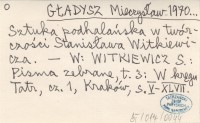 GŁADYSZ Mieczysław 1970...
Sztuka podhalańska w twór-
czości Stanisława Witkiewi-
cza. — W: WITKIEWICZ S.:
Pisma zebrane, t. 3: W kręgu
Tatr, cz. 1, Kraków, s. V-XLVII